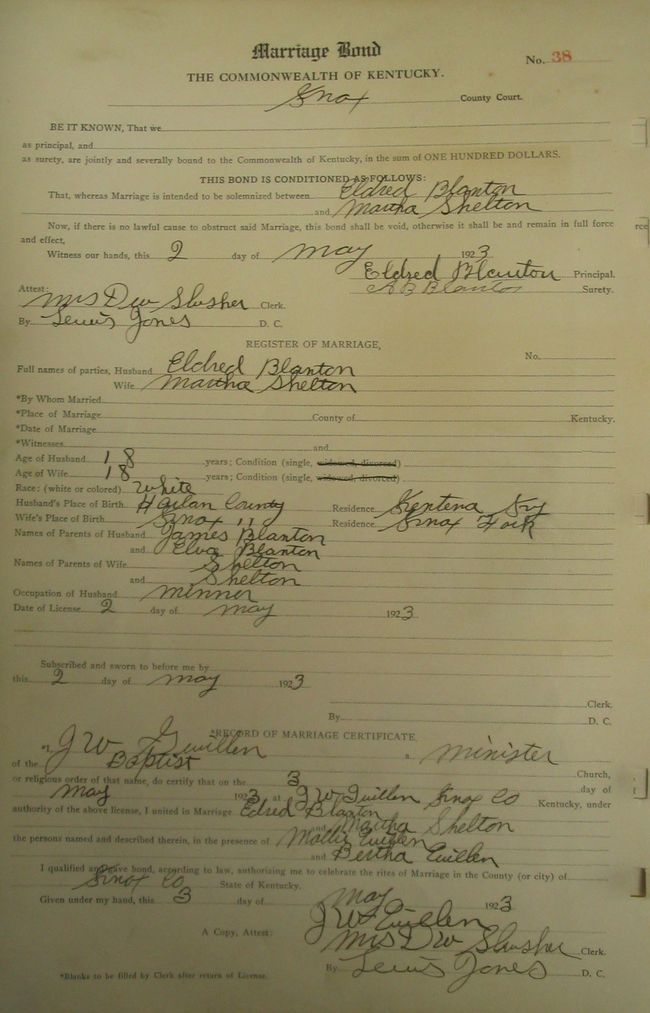 Marriage Bond
No. 38
THE COMMONWEALTH OF KENTUCKY.
Knox County Court.
BE IT KNOWN, That we
as principal, and
as surety, are jointly and severally bound to the Commonwealth of Kentucky, in the sum of ONE HUNDRED DOLLARS.
THIS BOND IS CONDITIONED AS FOLLOWS:
That, whereas Marriage is intended to be solemnized between Eldred Blanton
and Martha Shelton
Now, if there is no lawful cause to obstruct said Marriage, this bond shall be void, otherwise it shall be and remain in full force
and effect,
Witness our hands, this 2 day of May 1923
Eldred Blanton Principal.
Attest: A B Blanton Surety.
Mrs D W Slusher Clerk.
By Lewis Jones D. C.
REGISTER OF MARRIAGE,
No.
Full names of parties, Husband Eldred Blanton
Wife Martha Shelton
*By Whom Married
*Place of Marriage County of Kentucky.
*Date of Marriage
*Witnesses and
Age of Husband 18 years; Condition (single, widowed, divorced)
Age of Wife 18 years; Condition (single, widowed, divorced)
Race: (white or colored) White
Husband's Place of Birth Harlan County Residence Kentena Ky
Wife's Place of Birth Knox " Residence Knox Fork
Names of Parents of Husband James Blanton
and Elva Blanton
Names of Parents of Wife Shelton
and Shelton
Occupation of Husband Minner
Date of License 2 day of May 1923
Subscribed and sworn to before me by
this 2 day of May 1923
Clerk.
By D. C.
*RECORD OF MARRIAGE CERTIFICATE.
*I, J W Guillen a Minister
of the Baptist Church,
or religious order of that name, do certify that on the 3 day of
May 1923 at J W Guillen Knox Co Kentucky, under
authority of the above license, I united in Marriage Edred Blanton
and Martha Shelton
the persons named and described therein, in the presence of Mollie Guillen
and Bertha Guillen
I qualified and gave bond, according to law, authorizing me to celebrate the rites of Marriage in the County (or city) of
Knox Co State of Kentucky.
Given under my hand, this 3 day of May 1923
J W Guillen
A Copy, Attest: Mrs D W Slusher Clerk.
By Lewis Jones D. C.
*Blanks to be filled by Clerk after return of License.